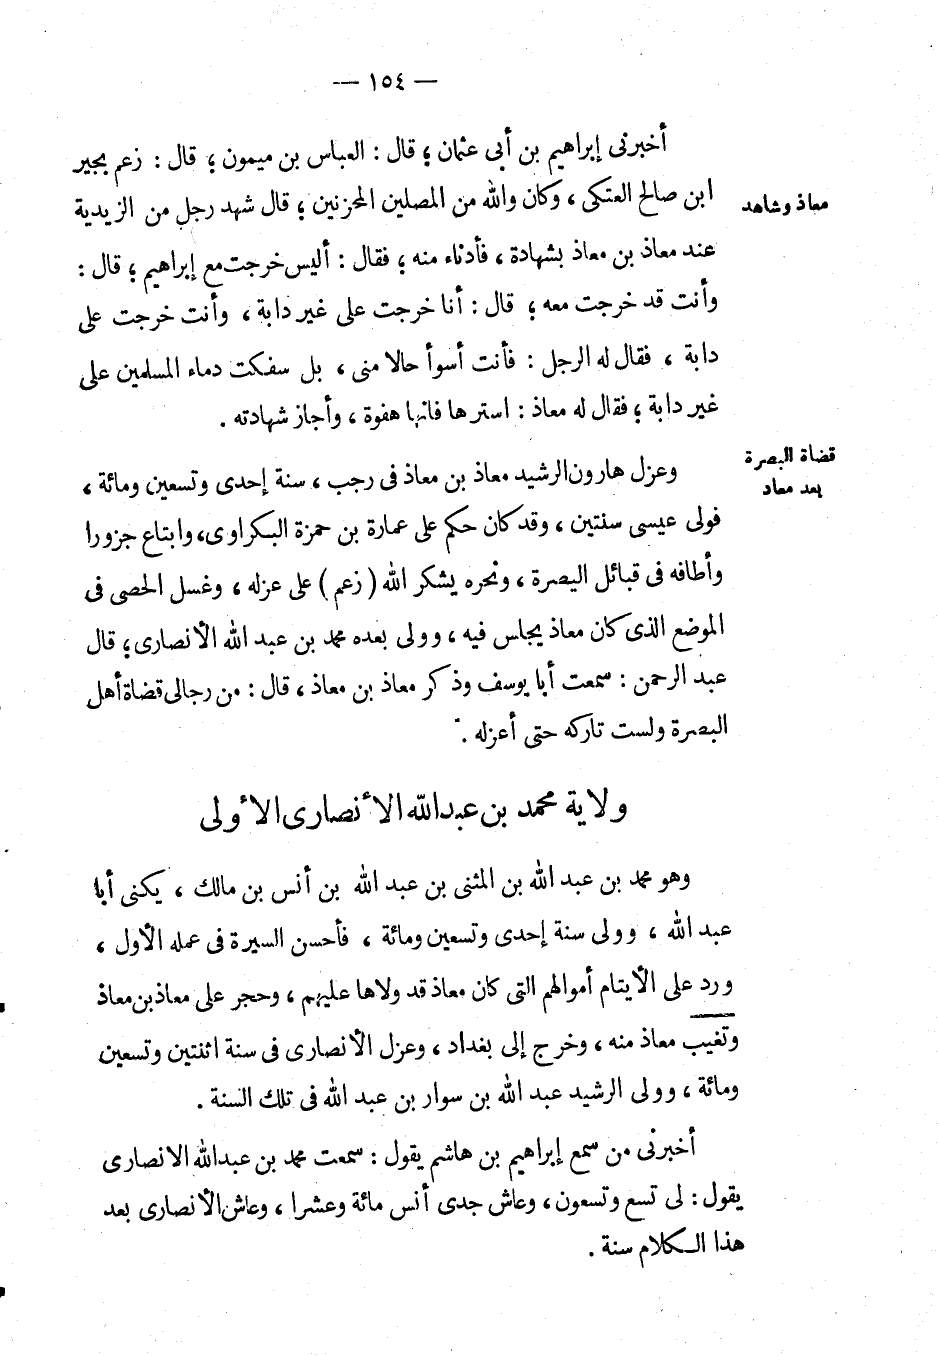 — ١٥٤ —
أخبرنى إبراهيم بن أبى عثمان ؛ قال : العباس بن ميمون ؛ قال : زعم بجير
ابن صالح العتكى ، وكان والله من المصلين المحزنين ؛ قال شهد رجل من الزيدية
معاذ وشاهد
عند معاذ بن معاذ بشهادة ، فأدناه منه ؛ فقال : أليس خرجت مع إبراهيم ؛ قال :
وأنت قد خرجت معه ؛ قال : أنا خرجت على غير دابة ، وأنت خرجت على
دابة ، فقال له الرجل : فأنت أسوأ حالا منى ، بل سفكت دماء المسلمين على
غير دابة ؛ فقال له معاذ : استرها فانها هفوة ، وأجاز شهادته .
وعزل هارون الرشيد معاذ بن معاذ فى رجب ، سنة إحدى وتسعين ومائة ،
قضاة البصرة
بعد معاد
فولى عيسى سنتين ، وقد كان حكم على عمارة بن حمزة البكراوى، وابتاع جزورا
وأطافه فى قبائل البصرة ، ونحره يشكر الله (زعم) على عزله ، وغسل الحصى فى
الموضع الذى كان معاذ يجلس فيه ، وولى بعده محمد بن عبد الله الأنصارى ؛ قال
عبد الرحمن : سمعت أبا يوسف وذكر معاذ بن معاذ ، قال : من رجالى قضاة أهل
البصرة ولست تاركه حتى أعزله .
ولاية محمد بن عبد الله الأنصارى الأولى
وهو محمد بن عبد الله بن المثنى بن عبد الله بن أنس بن مالك ، يكنى أبا
عبد الله ، وولى سنة إحدى وتسعين ومائة ، فأحسن السيرة فى عمله الأول ،
ورد على الأيتام أموالهم التى كان معاذ قد ولاها عليهم ، وحجر على معاذ بن معاذ
وتغيب معاذ منه ، وخرج إلى بغداد ، وعزل الأنصارى فى سنة اثنتين وتسعين
ومائة ، وولى الرشيد عبد الله بن سوار بن عبد الله فى تلك السنة .
أخبرنى من سمع إبراهيم بن هاشم يقول : سمعت محمد بن عبدالله الانصارى
يقول : لى تسع وتسعون ، وعاش جدى أنس مائة وعشرا ، وعاش الأنصارى بعد
هذا الكلام سنة .